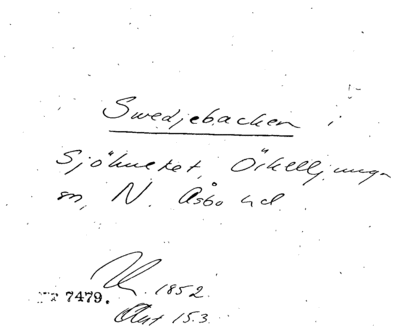 Swedjebacken i
Sjöhuset, Örkelljunga
sn, N. Åsbo hd
7479. 1852.
Avt 15.3.